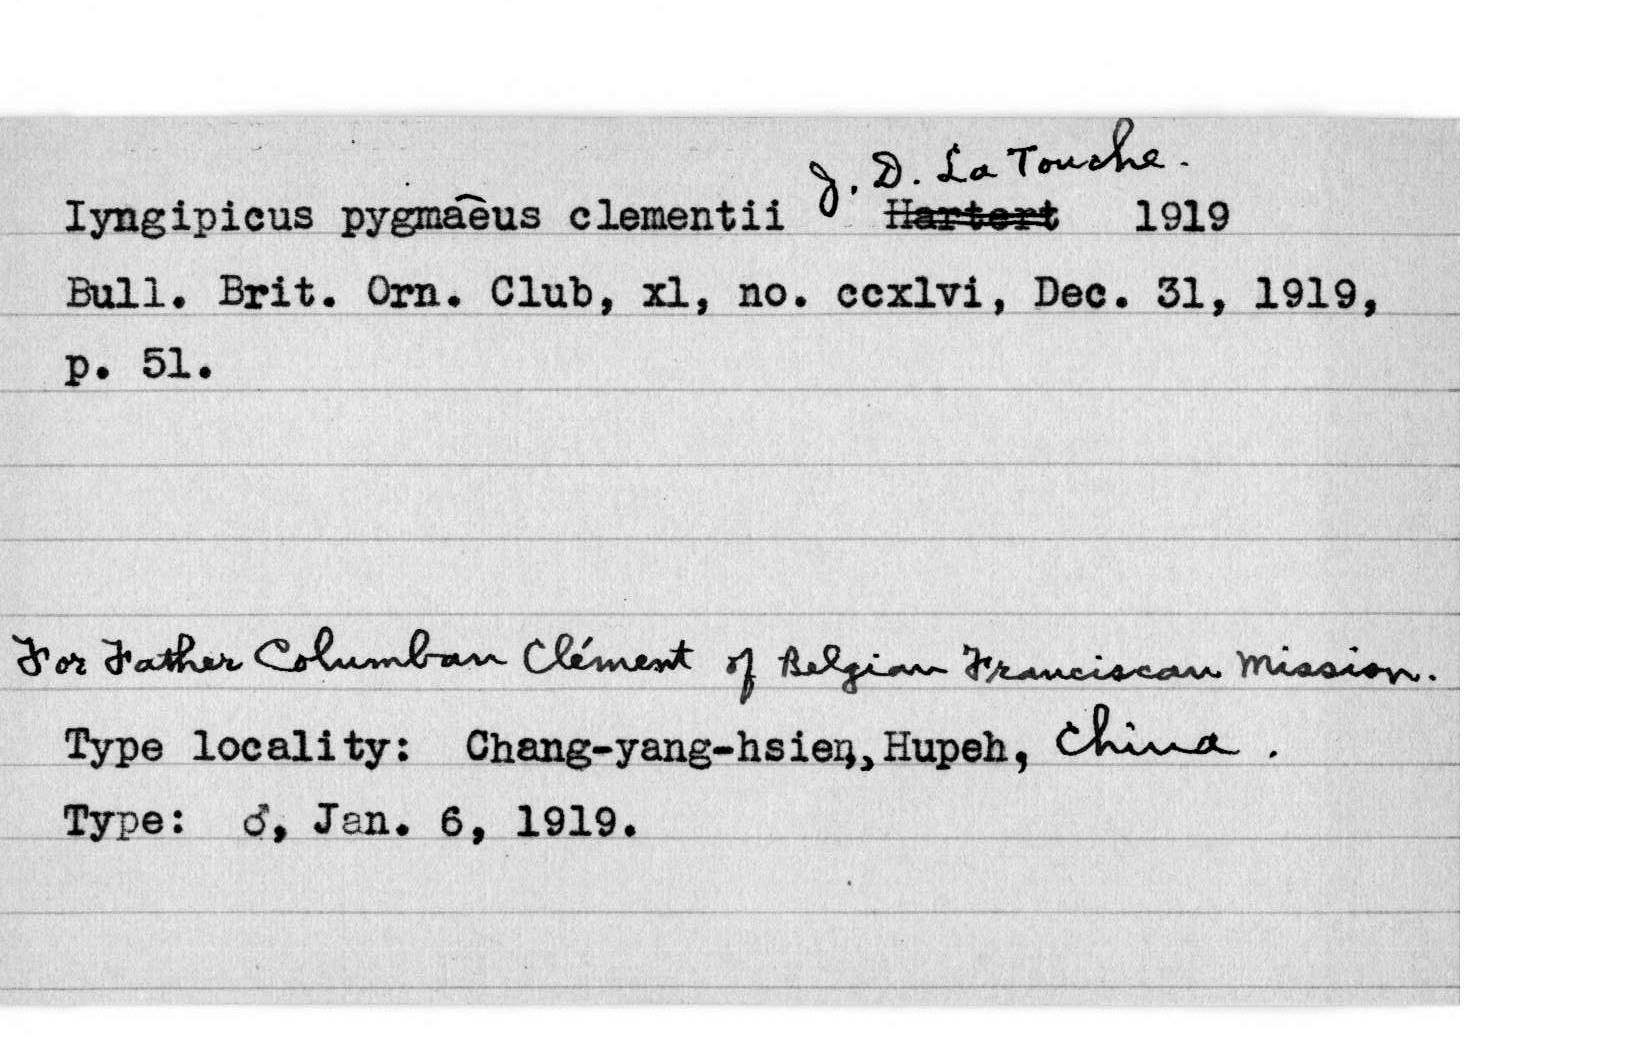 J. D. La Touche.
Iyngipicus pygmaeus clementii Hartert 1919
Bull. Brit. Orn. Club, xl, no. ccxlvi, Dec. 31, 1919,
p. 51.
For Father Columban Clément of Belgian Franciscan Mission.
Type locality: Chang-yang-hsien, Hupeh, China.
Type: ♂, Jan. 6, 1919.